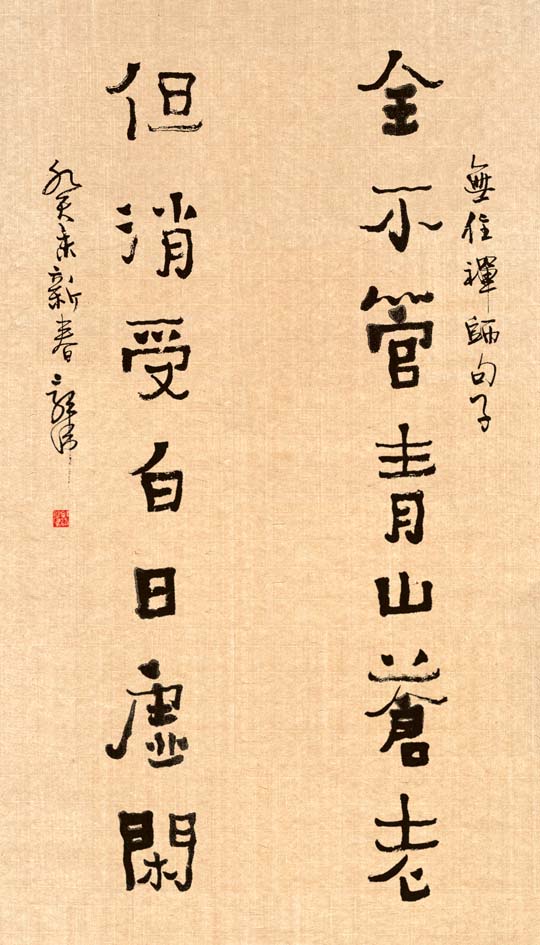 無住禪師句子
全不管青山蒼老
但消受白日虛閑
癸未新春